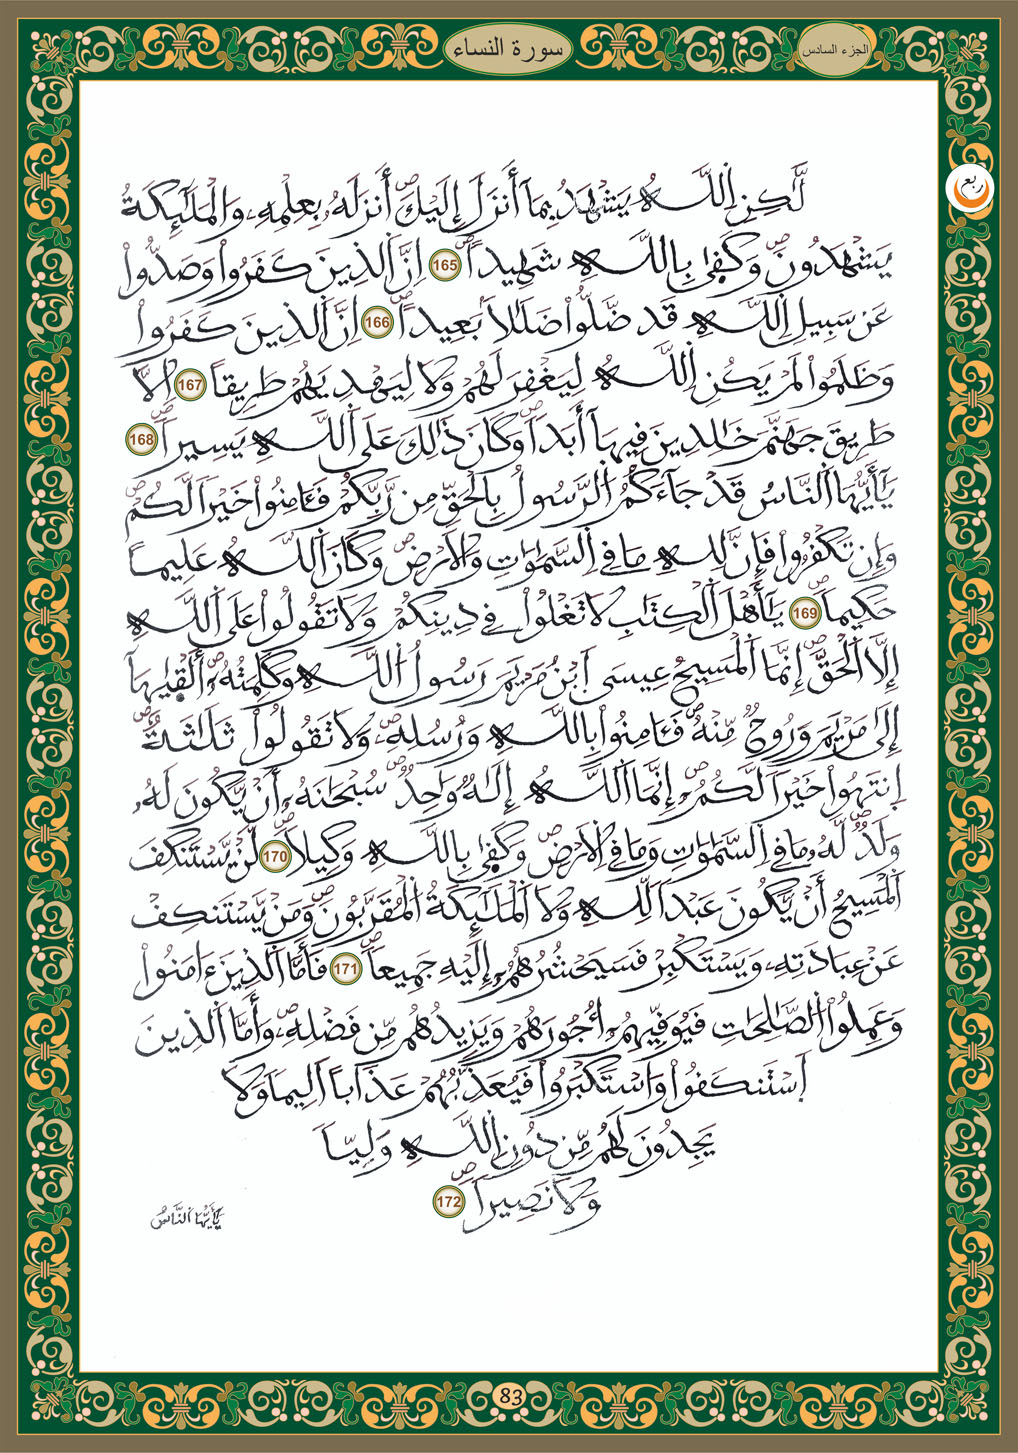 سورة النساء
الجزء السادس
ربع
لَّٰكِنِ اِ۬للَّهُ يَشْهَدُ بِمَآ أَنزَلَ إِلَيْكَۖ أَنزَلَهُۥ بِعِلْمِهِۦ وَالْمَلَٰٓئِكَةُ
يَشْهَدُونَۖ وَكَفَىٰ بِاللَّهِ شَهِيداًۖ 165 إِنَّ اَ۬لذِينَ كَفَرُواْ وَصَدُّواْ
عَن سَبِيلِ اِ۬للَّهِ قَد ضَّلُّواْ ضَلَٰلاَۢ بَعِيداًۖ 166 إِنَّ اَ۬لذِينَ كَفَرُواْ
وَظَلَمُواْ لَمْ يَكُنِ اِ۬للَّهُ لِيَغْفِرَ لَهُمْ وَلَا لِيَهْدِيَهُمْ طَرِيقاً 167 اِلَّا
طَرِيقَ جَهَنَّمَ خَٰلِدِينَ فِيهَآ أَبَداًۖ وَكَانَ ذَٰلِكَ عَلَى اَ۬للَّهِ يَسِيراًۖ 168
يَٰٓأَيُّهَا اَ۬لنَّاسُ قَدْ جَآءَكُمُ اُ۬لرَّسُولُ بِالْحَقِّ مِن رَّبِّكُمْ فَـَٔامِنُواْ خَيْراٗ لَّكُمْۖ
وَإِن تَكْفُرُواْ فَإِنَّ لِلهِ مَا فِے اِ۬لسَّمَٰوَٰتِ وَالْأَرْضِۖ وَكَانَ اَ۬للَّهُ عَلِيماً
حَكِيماًۖ 169 يَٰٓأَهْلَ اَ۬لْكِتَٰبِ لَا تَغْلُواْ فِے دِينِكُمْ وَلَا تَقُولُواْ عَلَى اَ۬للَّهِ
إِلَّا اَ۬لْحَقَّۖ إِنَّمَا اَ۬لْمَسِيحُ عِيسَى اَ۪بْنُ مَرْيَمَ رَسُولُ اُ۬للَّهِ وَكَلِمَتُهُۥٓ أَلْقَىٰهَآ
إِلَىٰ مَرْيَمَ وَرُوحٌ مِّنْهُۖ فَـَٔامِنُواْ بِاللَّهِ وَرُسُلِهِۦۖ وَلَا تَقُولُواْ ثَلَٰثَةٌۖ
اِ۪نتَهُواْ خَيْراٗ لَّكُمُۥٓۖ إِنَّمَا اَ۬للَّهُ إِلَٰهٌ وَٰحِدٌۖ سُبْحَٰنَهُۥٓ أَنْ يَّكُونَ لَهُۥ
وَلَدٌۖ لَّهُۥ مَا فِے اِ۬لسَّمَٰوَٰتِ وَمَا فِے اِ۬لْأَرْضِۖ وَكَفَىٰ بِاللَّهِ وَكِيلاًۖ 170 لَّنْ يَّسْتَنكِفَ
اَ۬لْمَسِيحُ أَنْ يَّكُونَ عَبْداٗ لِّلهِ وَلَا اَ۬لْمَلَٰٓئِكَةُ اُ۬لْمُقَرَّبُونَۖ وَمَنْ يَّسْتَنكِفْ
عَنْ عِبَادَتِهِۦ وَيَسْتَكْبِرْ فَسَيَحْشُرُهُمُۥٓ إِلَيْهِ جَمِيعاًۖ 171 فَأَمَّا اَ۬لذِينَ ءَامَنُواْ
وَعَمِلُواْ اُ۬لصَّٰلِحَٰتِ فَيُوَفِّيهِمُۥٓ أُجُورَهُمْ وَيَزِيدُهُم مِّن فَضْلِهِۦۖ وَأَمَّا اَ۬لذِينَ
اَ۪سْتَنكَفُواْ وَاسْتَكْبَرُواْ فَيُعَذِّبُهُمْ عَذَاباً اَلِيماٗ وَلَا
يَجِدُونَ لَهُم مِّن دُونِ اِ۬للَّهِ وَلِيّاٗ
وَلَا نَصِيراًۖ 172
يَٰٓأَيُّهَا اَ۬لنَّاسُ
83